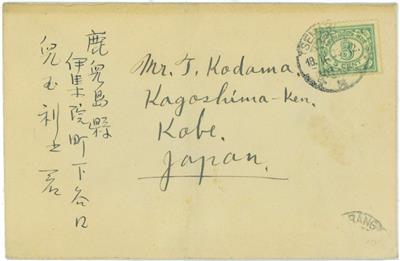 鹿兒島縣
伊集院町下谷口
兒玉利之君
Mr. T. Kodama.
Kagoshima-Ken.
Kobe.
Japan.
CENT
RANG